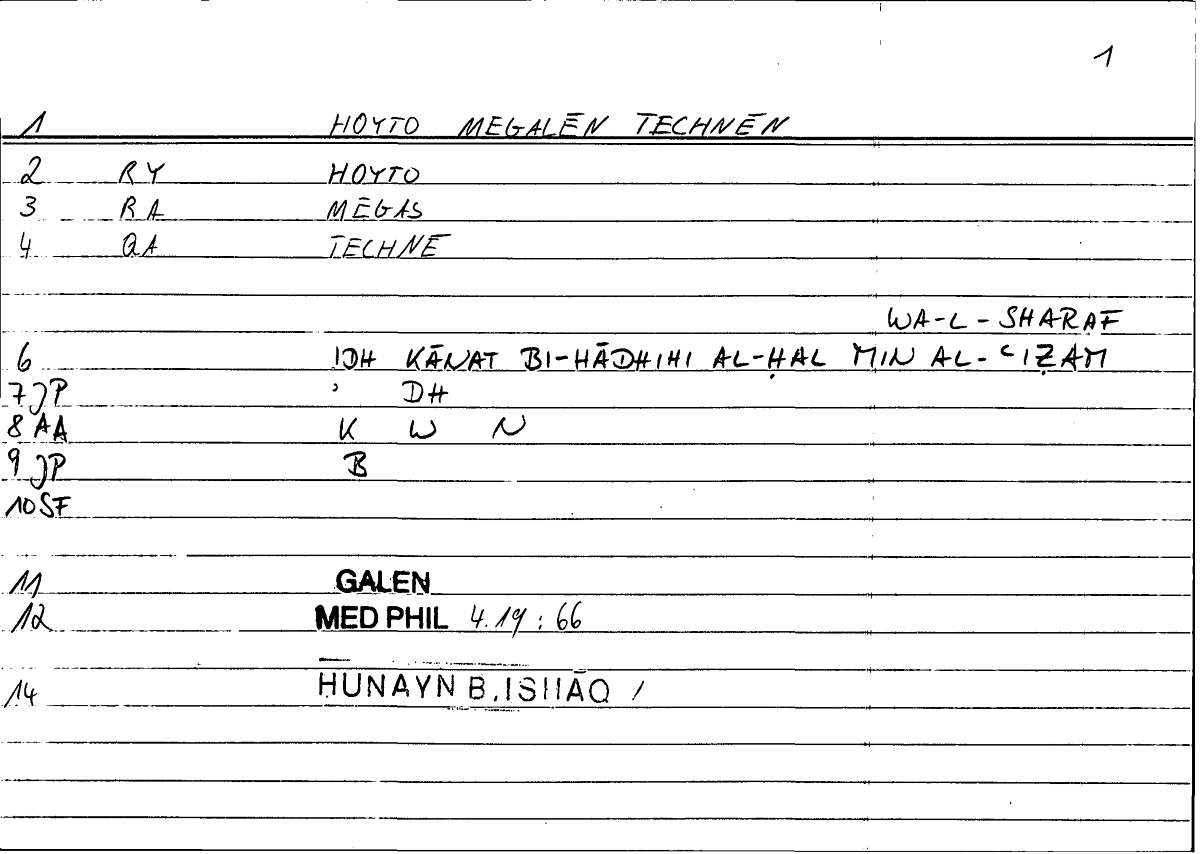 1
1 HOYTO MEGALĒN TECHNĒN
2 RY HOYTO
3 RA MEGAS
4 QA TECHNĒ
WA-L-SHARAF
6 IDH KĀNAT BI-HĀDHIHI AL-ḤAL MIN AL-ʿIẒAM
7 JP ʾ DH
8 AA K W N
9 JP B
10 SF
11 GALEN
12 MED PHIL 4.19 : 66
14 HUNAYN B. ISḤĀQ /